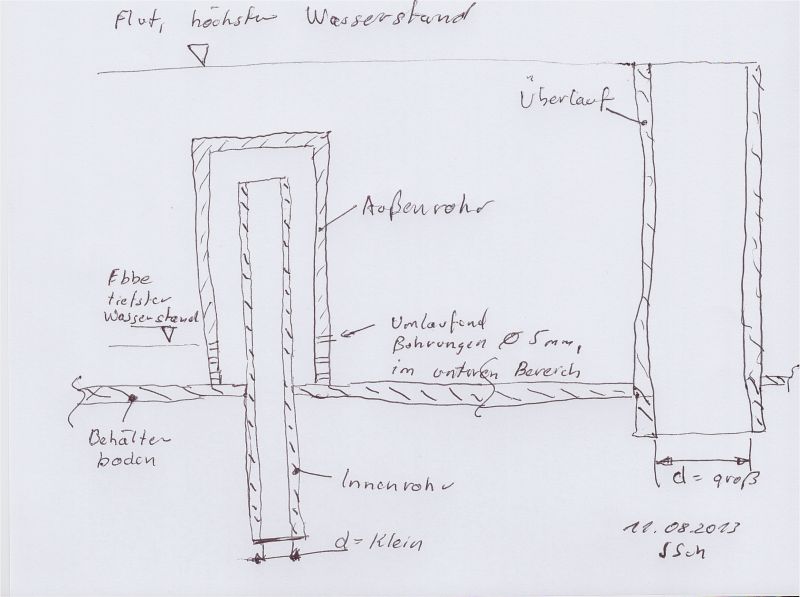 Flut, höchster Wasserstand
Überlauf
Außenrohr
Ebbe
tiefster
Wasserstand
Umlaufend
Bohrungen Ø 5mm,
im unteren Bereich
Behälter
boden
Innenrohr
d = groß
d = Klein
11.08.2013
SSch